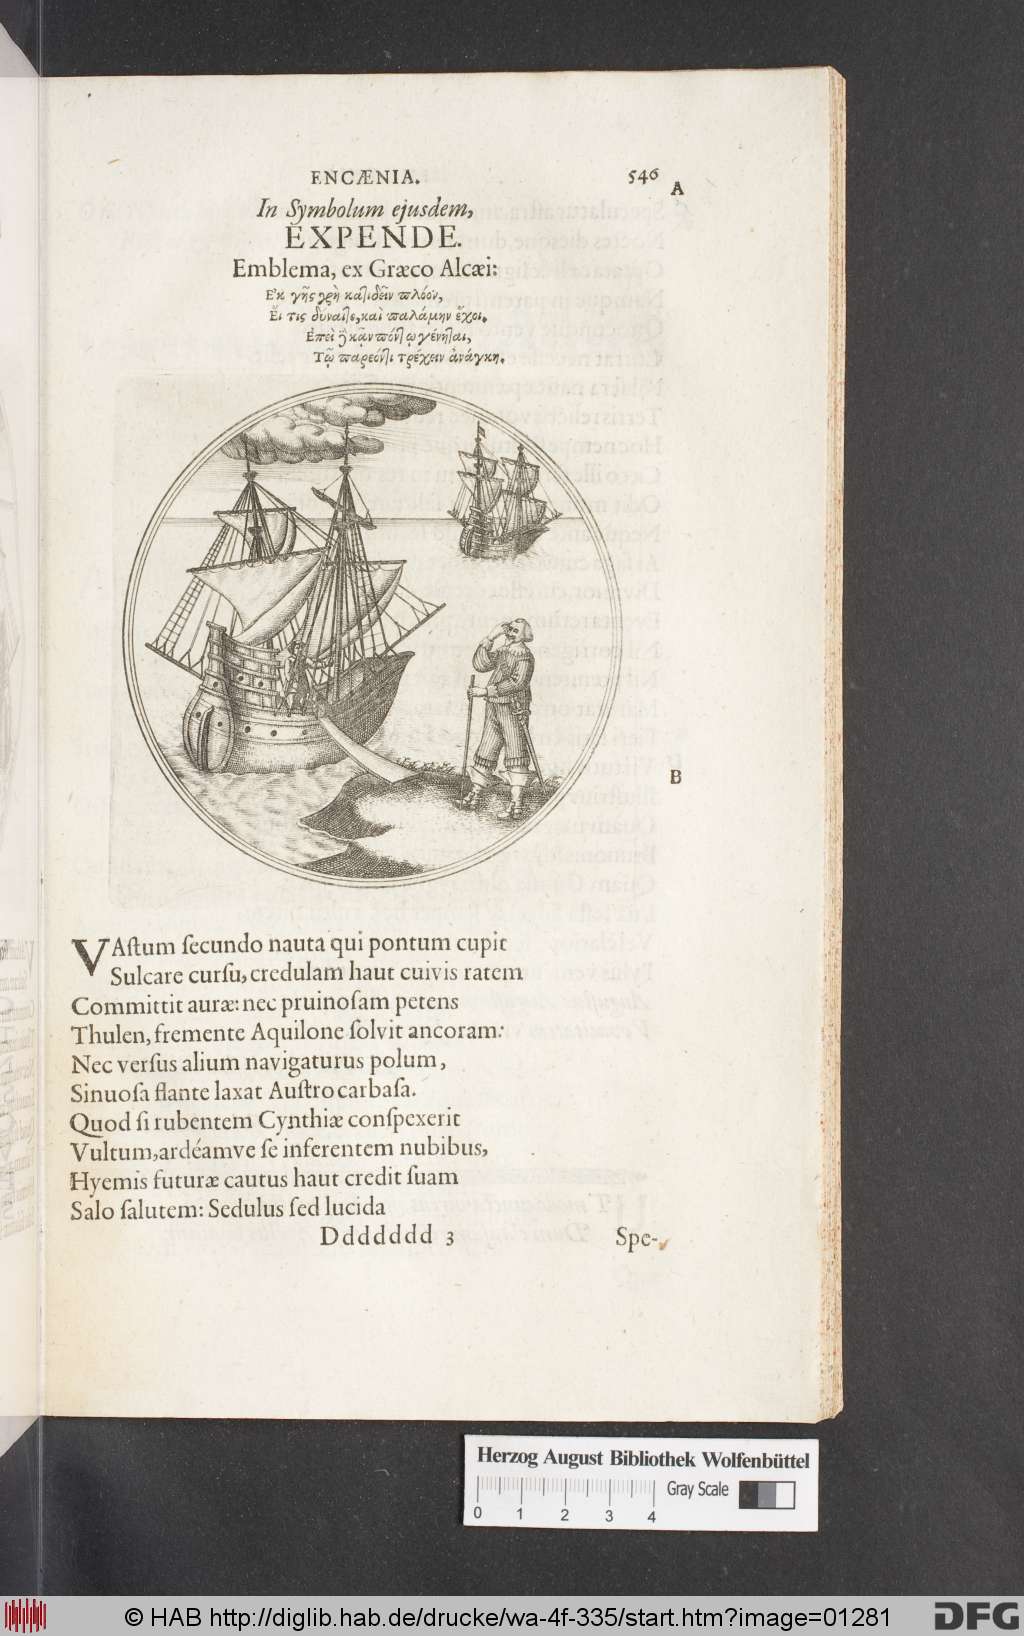 ENCÆNIA. 546
A
In Symbolum ejusdem,
EXPENDE.
Emblema, ex Græco Alcæi:
Ἐκ γῆς χρὴ κατιδεῖν πλόον,
Εἴ τις δύναιτο, καὶ παλάμην ἔχοι.
Ἐπεὶ δὲ κἂν πόντῳ γένηται,
Τῷ παρεόντι τρέχειν ἀνάγκη.
VAſtum ſecundo nauta qui pontum cupit
Sulcare curſu, credulam haut cuivis ratem
Committit auræ: nec pruinoſam petens
Thulen, fremente Aquilone ſolvit ancoram:
Nec verſus alium navigaturus polum,
Sinuoſa flante laxat Auſtro carbaſa.
Quod ſi rubentem Cynthiæ conſpexerit
Vultum, ardéamve ſe inferentem nubibus,
Hyemis futuræ cautus haut credit ſuam
Salo ſalutem: Sedulus ſed lucida
B
Ddddddd 3 Spe-
Herzog August Bibliothek Wolfenbüttel
Gray Scale
0 1 2 3 4
© HAB http://diglib.hab.de/drucke/wa-4f-335/start.htm?image=01281
DFG